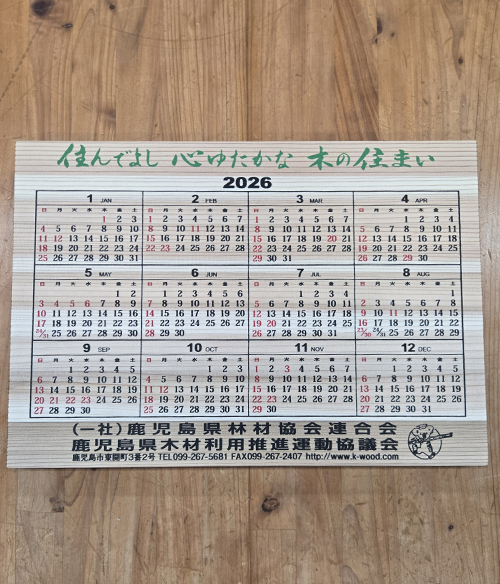 住んでよし 心ゆたかな 木の住まい
2026
1 JAN 2 FEB 3 MAR 4 APR
日 月 火 水 木 金 土 日 月 火 水 木 金 土 日 月 火 水 木 金 土 日 月 火 水 木 金 土
1 2 3 1 2 3 4 5 6 7 1 2 3 4 5 6 7 1 2 3 4
4 5 6 7 8 9 10 8 9 10 11 12 13 14 8 9 10 11 12 13 14 5 6 7 8 9 10 11
11 12 13 14 15 16 17 15 16 17 18 19 20 21 15 16 17 18 19 20 21 12 13 14 15 16 17 18
18 19 20 21 22 23 24 22 23 24 25 26 27 28 22 23 24 25 26 27 28 19 20 21 22 23 24 25
25 26 27 28 29 30 31 29 30 31 26 27 28 29 30
5 MAY 6 JUN 7 JUL 8 AUG
日 月 火 水 木 金 土 日 月 火 水 木 金 土 日 月 火 水 木 金 土 日 月 火 水 木 金 土
1 2 1 2 3 4 5 6 1 2 3 4 1
3 4 5 6 7 8 9 7 8 9 10 11 12 13 5 6 7 8 9 10 11 2 3 4 5 6 7 8
10 11 12 13 14 15 16 14 15 16 17 18 19 20 12 13 14 15 16 17 18 9 10 11 12 13 14 15
17 18 19 20 21 22 23 21 22 23 24 25 26 27 19 20 21 22 23 24 25 16 17 18 19 20 21 22
24/31 25 26 27 28 29 30 28 29 30 26 27 28 29 30 31 23/30 24/31 25 26 27 28 29
9 SEP 10 OCT 11 NOV 12 DEC
日 月 火 水 木 金 土 日 月 火 水 木 金 土 日 月 火 水 木 金 土 日 月 火 水 木 金 土
1 2 3 4 5 1 2 3 1 2 3 4 5 6 7 1 2 3 4 5
6 7 8 9 10 11 12 4 5 6 7 8 9 10 8 9 10 11 12 13 14 6 7 8 9 10 11 12
13 14 15 16 17 18 19 11 12 13 14 15 16 17 15 16 17 18 19 20 21 13 14 15 16 17 18 19
20 21 22 23 24 25 26 18 19 20 21 22 23 24 22 23 24 25 26 27 28 20 21 22 23 24 25 26
27 28 29 30 25 26 27 28 29 30 31 29 30 27 28 29 30 31
(一社)鹿児島県林材協会連合会
鹿児島県木材利用推進運動協議会
鹿児島市東開町3番2号 TEL099-267-5681 FAX099-267-2407 http://www.k-wood.com